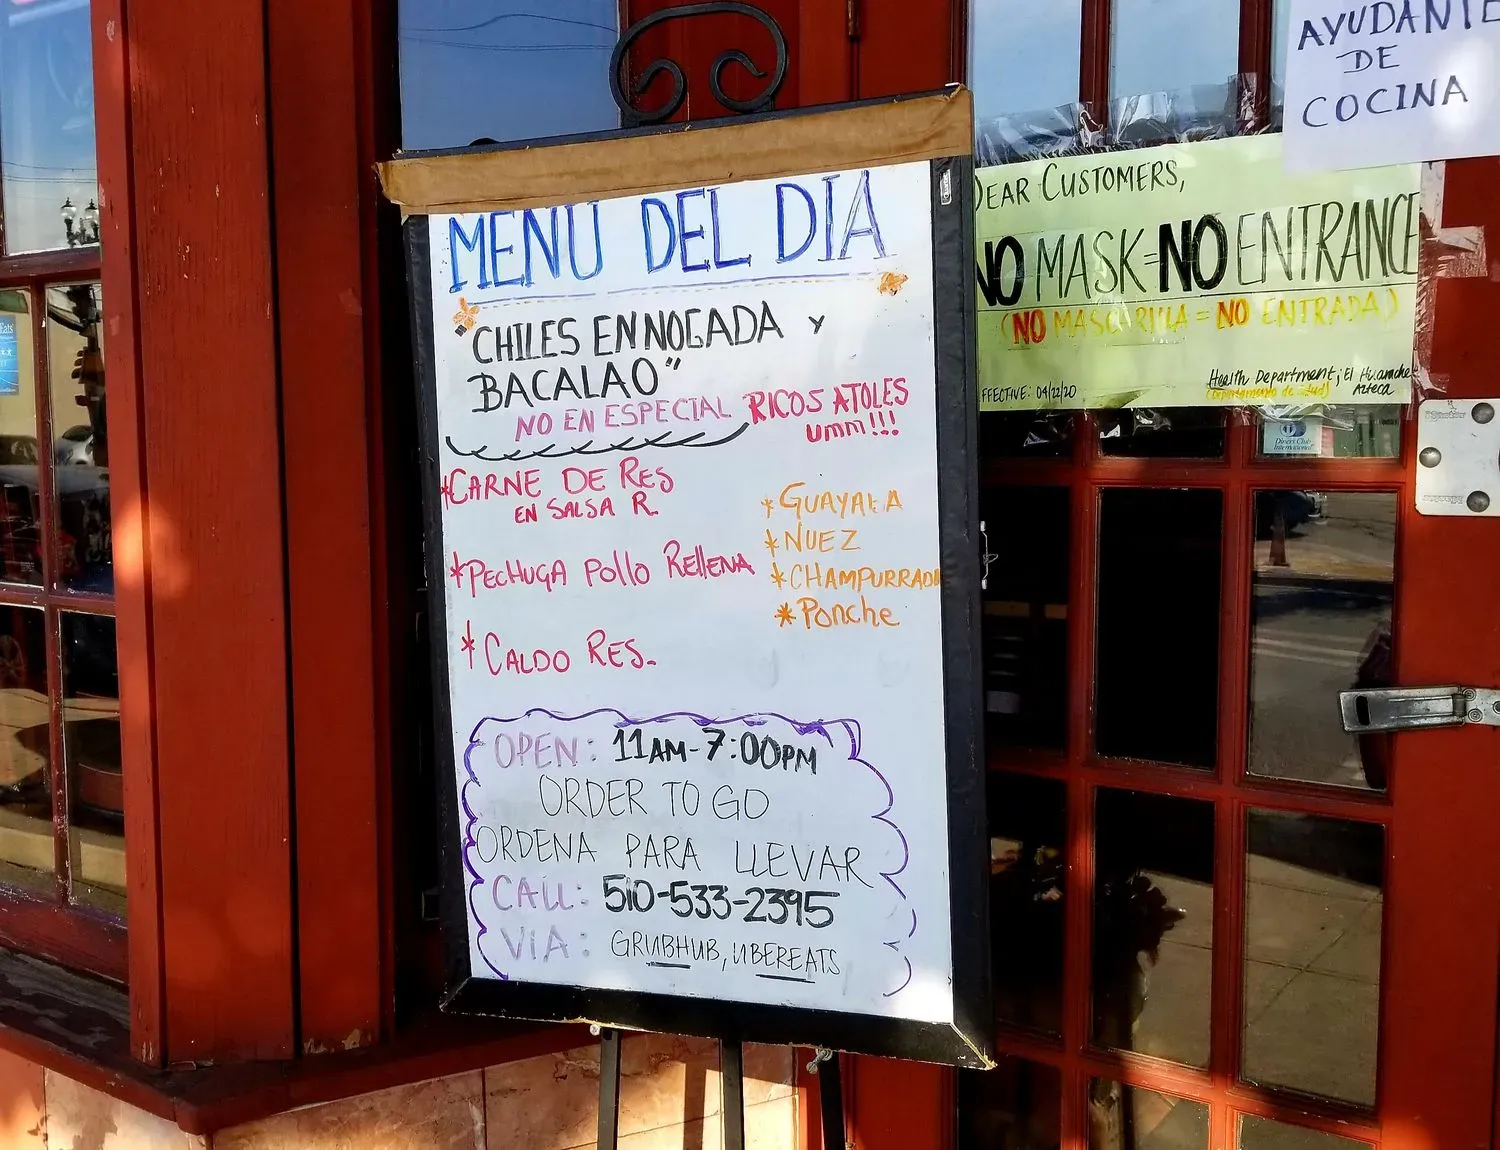 MENU DEL DIA
"CHILES EN NOGADA Y
BACALAO"
NO EN ESPECIAL
RICOS ATOLES
Umm!!!
*CARNE DE RES
EN SALSA R.
*PECHUGA POLLO RELLENA
*CALDO RES.
*GUAYABA
*NUEZ
*CHAMPURRADO
*PONCHE
OPEN: 11AM-7:00PM
ORDER TO GO
ORDENA PARA LLEVAR
CALL: 510-533-2395
VIA: GRUBHUB, UBEREATS
AYUDANTE
DE
COCINA
DEAR CUSTOMERS,
NO MASK=NO ENTRANCE
(NO MASCARILLA = NO ENTRADA)
EFFECTIVE: 04/22/20
Health Department, El Huarache
(Departamento de Salud) Azteca
Diners Club
International
Eats